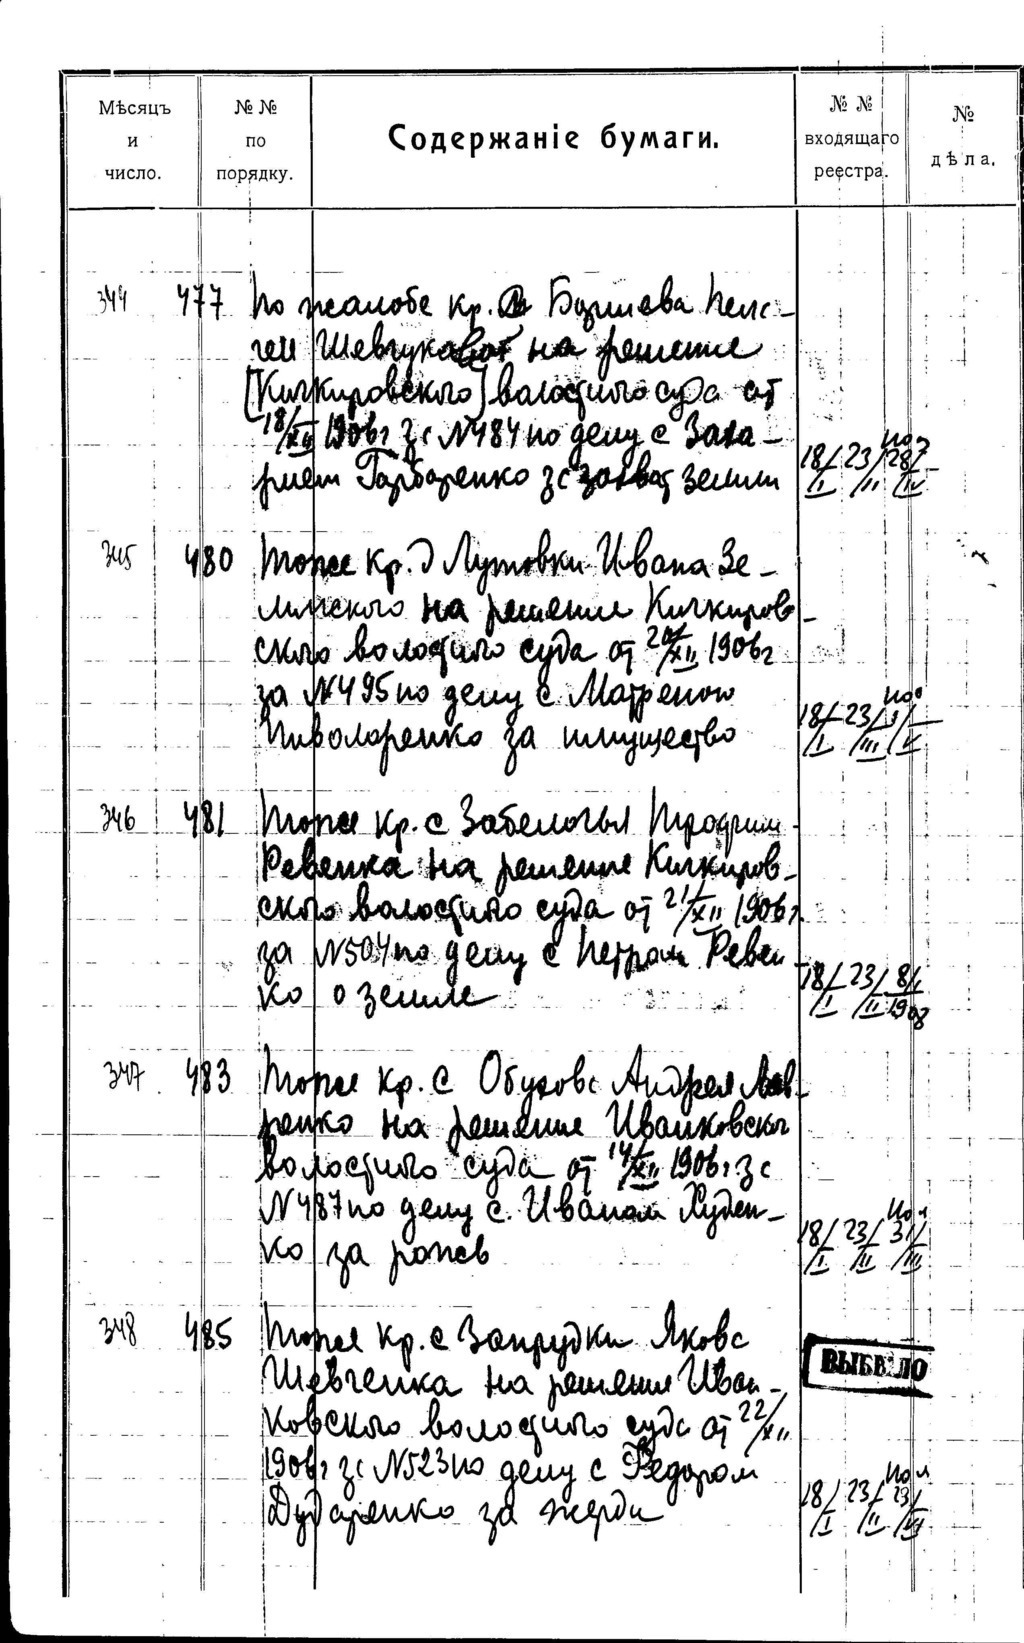 Мѣсяцъ и число.
№ № по порядку.
Содержаніе бумаги.
№ № входящаго реестра.
№ дѣла.
344 477 По жалобе кр. Пелс-
геи на решение
[Кичкировского] волостного суда от
18/XII 1906 г за N484 по делу с Заха-
рием Гарбаренко за захват земли
18/I 23/II 28/IV
345 480 Тоже кр. д Лутовки Ивана Зе-
линского на решение Кичкиров-
ского волостного суда от 20/XII 1906 г
за N495 по делу с Матреною
Пивоваренко за имущество
18/I 23/III
346 481 Тоже кр. с Забелочья Трофима
Ревенка на решение Кичкиров-
ского волостного суда от 21/XII 1906 г.
за N504 по делу с Петром Ревен
ко о земле
18/I 23/II 8/I 1908
347 483 Тоже кр. с Обухова Андрея Лав-
ренко на решение Иванковског
волостного суда от 14/XII 1906 г за
N487 по делу с Иваном Худен-
ко за рожь
18/I 23/II 31/III
348 485 Тоже кр. с Запрудки Якова
Шевченка на решение Иван-
ковского волостного суда от 22/XII
1906 г за N523 по делу с Федором
Дударенко за жерди
ВЫБЫЛО
18/I 23/II 23/VI